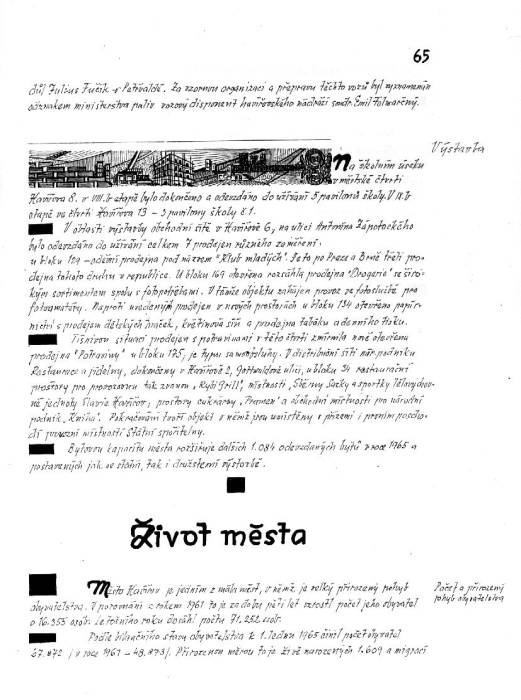 65
důl Julius Fučík v Petřvaldě. Za vzornou organizaci a přepravu těchto vozů byl vyznamenán
odznakem ministerstva paliv vozový disponent havířovského nádraží soudr. Emil Tolmarčný.
Výstavba
Na školním úseku
v městské čtvrti
Havířova 8. v VIII.b etapě bylo dokončeno a odevzdáno do užívání 5 pavilonů školy. V IX.b
etapě ve čtvrti Havířova 13 - 3 pavilony školy č.1.
V oblasti výstavby obchodní sítě v Havířově 6, na ulici Antonína Zápotockého
bylo odevzdáno do užívání celkem 7 prodejen různého zaměření:
u bloku 129 - oděvní prodejna pod názvem "Klub mladých". Je to po Praze a Brně třetí pro-
dejna tohoto druhu v republice. U bloku 169 otevřena rozsáhlá prodejna "Drogerie" se širo-
kým sortimentem spolu s fotopotřebami. V témže objektu zahájen provoz ve fotoslužbě pro
fotoamatéry. Naproti uvedeným prodejen v nových prostorách u bloku 134 otevřeno papír-
nictví s prodejem dětských hraček, květinová síň a prodejna tabáku a denního tisku.
Tísnivou situaci prodejen s potravinami v této čtvrti zmírnila nově otevřena
prodejna "Potraviny" u bloku 175, je typu samoobsluhy. V distribuční síti nár. podniku
Restaurace a jídelny, dokončeny v Havířově 2, Gottwaldově ulici, u bloku 31 restaurační
prostory pro provozovnu tak zvanou "Rybí gril", místnosti, Sběrny Sazky a sportky Tělovýchov-
né jednoty Slavie Havířov; prostory cukrárny "Pramen" a obchodní místnosti pro národní
podnik "Kniha". Pokračování tvoří objekt v němž jsou umístěny v přízemí i prvním poscho-
dí provozní místnosti Státní spořitelny.
Bytovou kapacitu města rozšiřuje dalších 1.084 odevzdaných bytů v roce 1965 a
postavených jak ve státní, tak i družstevní výstavbě.
Život města
Počet a přirozený
pohyb obyvatelstva
Město Havířov je jedním z mála měst, v němž je velký přirozený pohyb
obyvatelstva. V porovnání z rokem 1961 to je za dobu pěti let vzrostl počet jeho obyvatel
o 16.353 osob. Letošního roku dosáhl počtu 71.252 osob.
Podle bilančního stavu obyvatelstva k 1. lednu 1965 činil počet obyvatel
67.872 / v roce 1961 - 48.873/. Přirozenou měrou to je živě narozených 1.609 a migrací